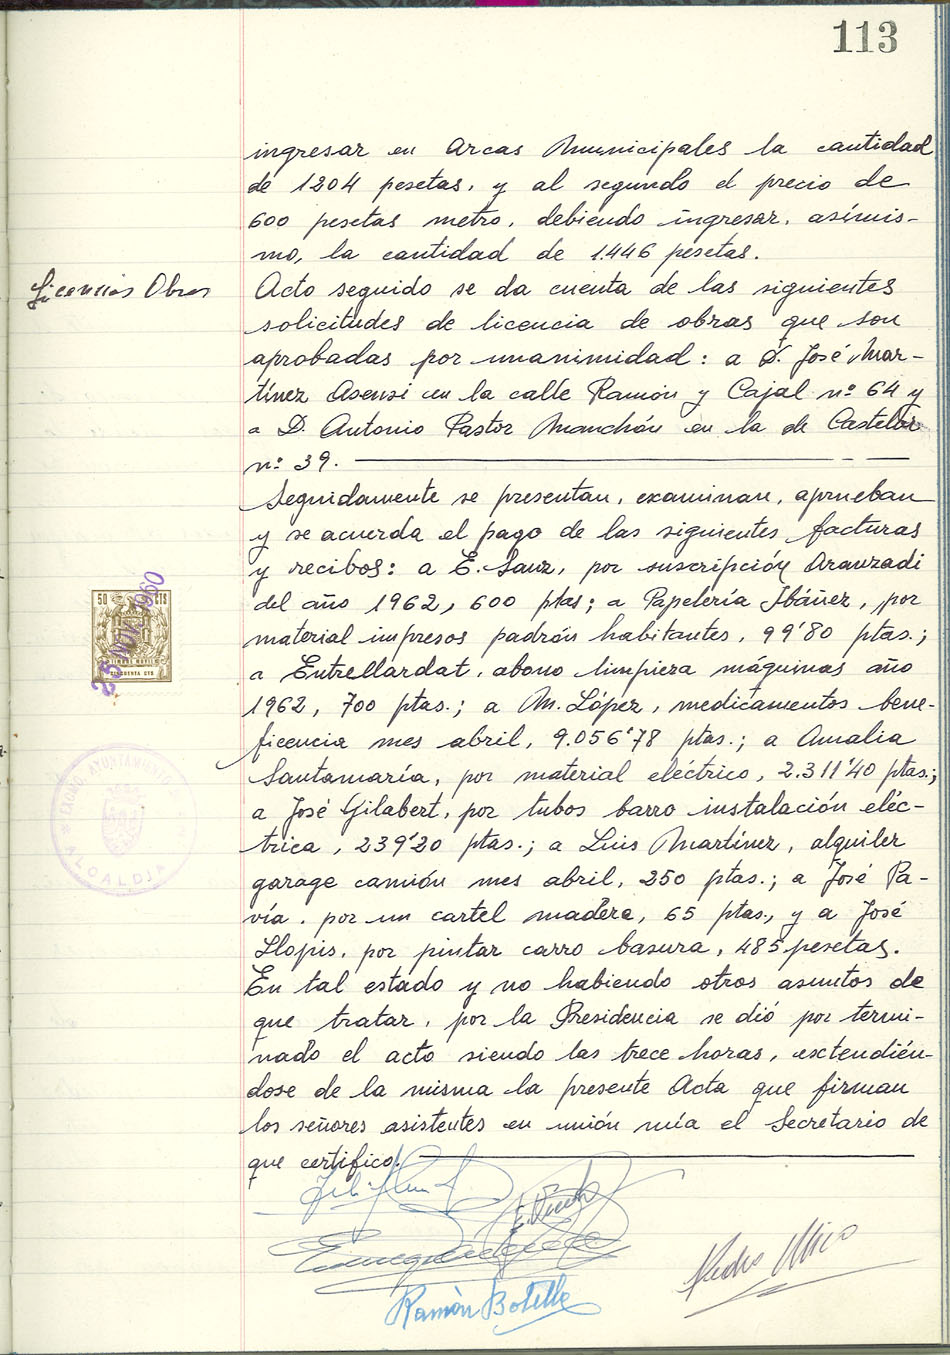 113
ingresar en Arcas Municipales la cantidad
de 1204 pesetas, y al segundo el precio de
600 pesetas metro, debiendo ingresar, asimis-
mo, la cantidad de 1.446 pesetas.
Licencias Obras
Acto seguido se da cuenta de las siguientes
solicitudes de licencia de obras que son
aprobadas por unanimidad: a D. José Mar-
tínez Asensi en la calle Ramón y Cajal nº 64 y
a D. Antonio Pastor Manchón en la de Castelar
nº 39.
Seguidamente se presentan, examinan, aprueban
y se acuerda el pago de las siguientes facturas
y recibos: a E. Sanz, por suscripción Aranzadi
del año 1962, 600 ptas; a Papelería Ibáñez, por
material impresos padrón habitantes, 99'80 ptas.;
a Entrellardat, abono limpieza máquinas año
1962, 700 ptas.; a M. López, medicamentos bene-
ficencia mes abril, 9.056'78 ptas.; a Amalia
Santamaría, por material eléctrico, 2.311'40 ptas.;
a José Gilabert, por tubos barro instalación eléc-
trica, 239'20 ptas.; a Luis Martínez, alquiler
garage camión mes abril, 250 ptas.; a José Pa-
vía, por un cartel madera, 65 ptas., y a José
Llopis, por pintar carro basura, 485 pesetas.
En tal estado y no habiendo otros asuntos de
que tratar, por la Presidencia se dió por termi-
nado el acto siendo las trece horas, exctendién-
dose de la misma la presente Acta que firman
los señores asistentes en unión mía el Secretario de
que certifico.
50 CTS
TIMBRE MOVIL
CINCUENTA CTS
25 NOV. 1960
EXCMO. AYUNTAMIENTO
ALCALDIA
Ramón Botella
Pedro Mico